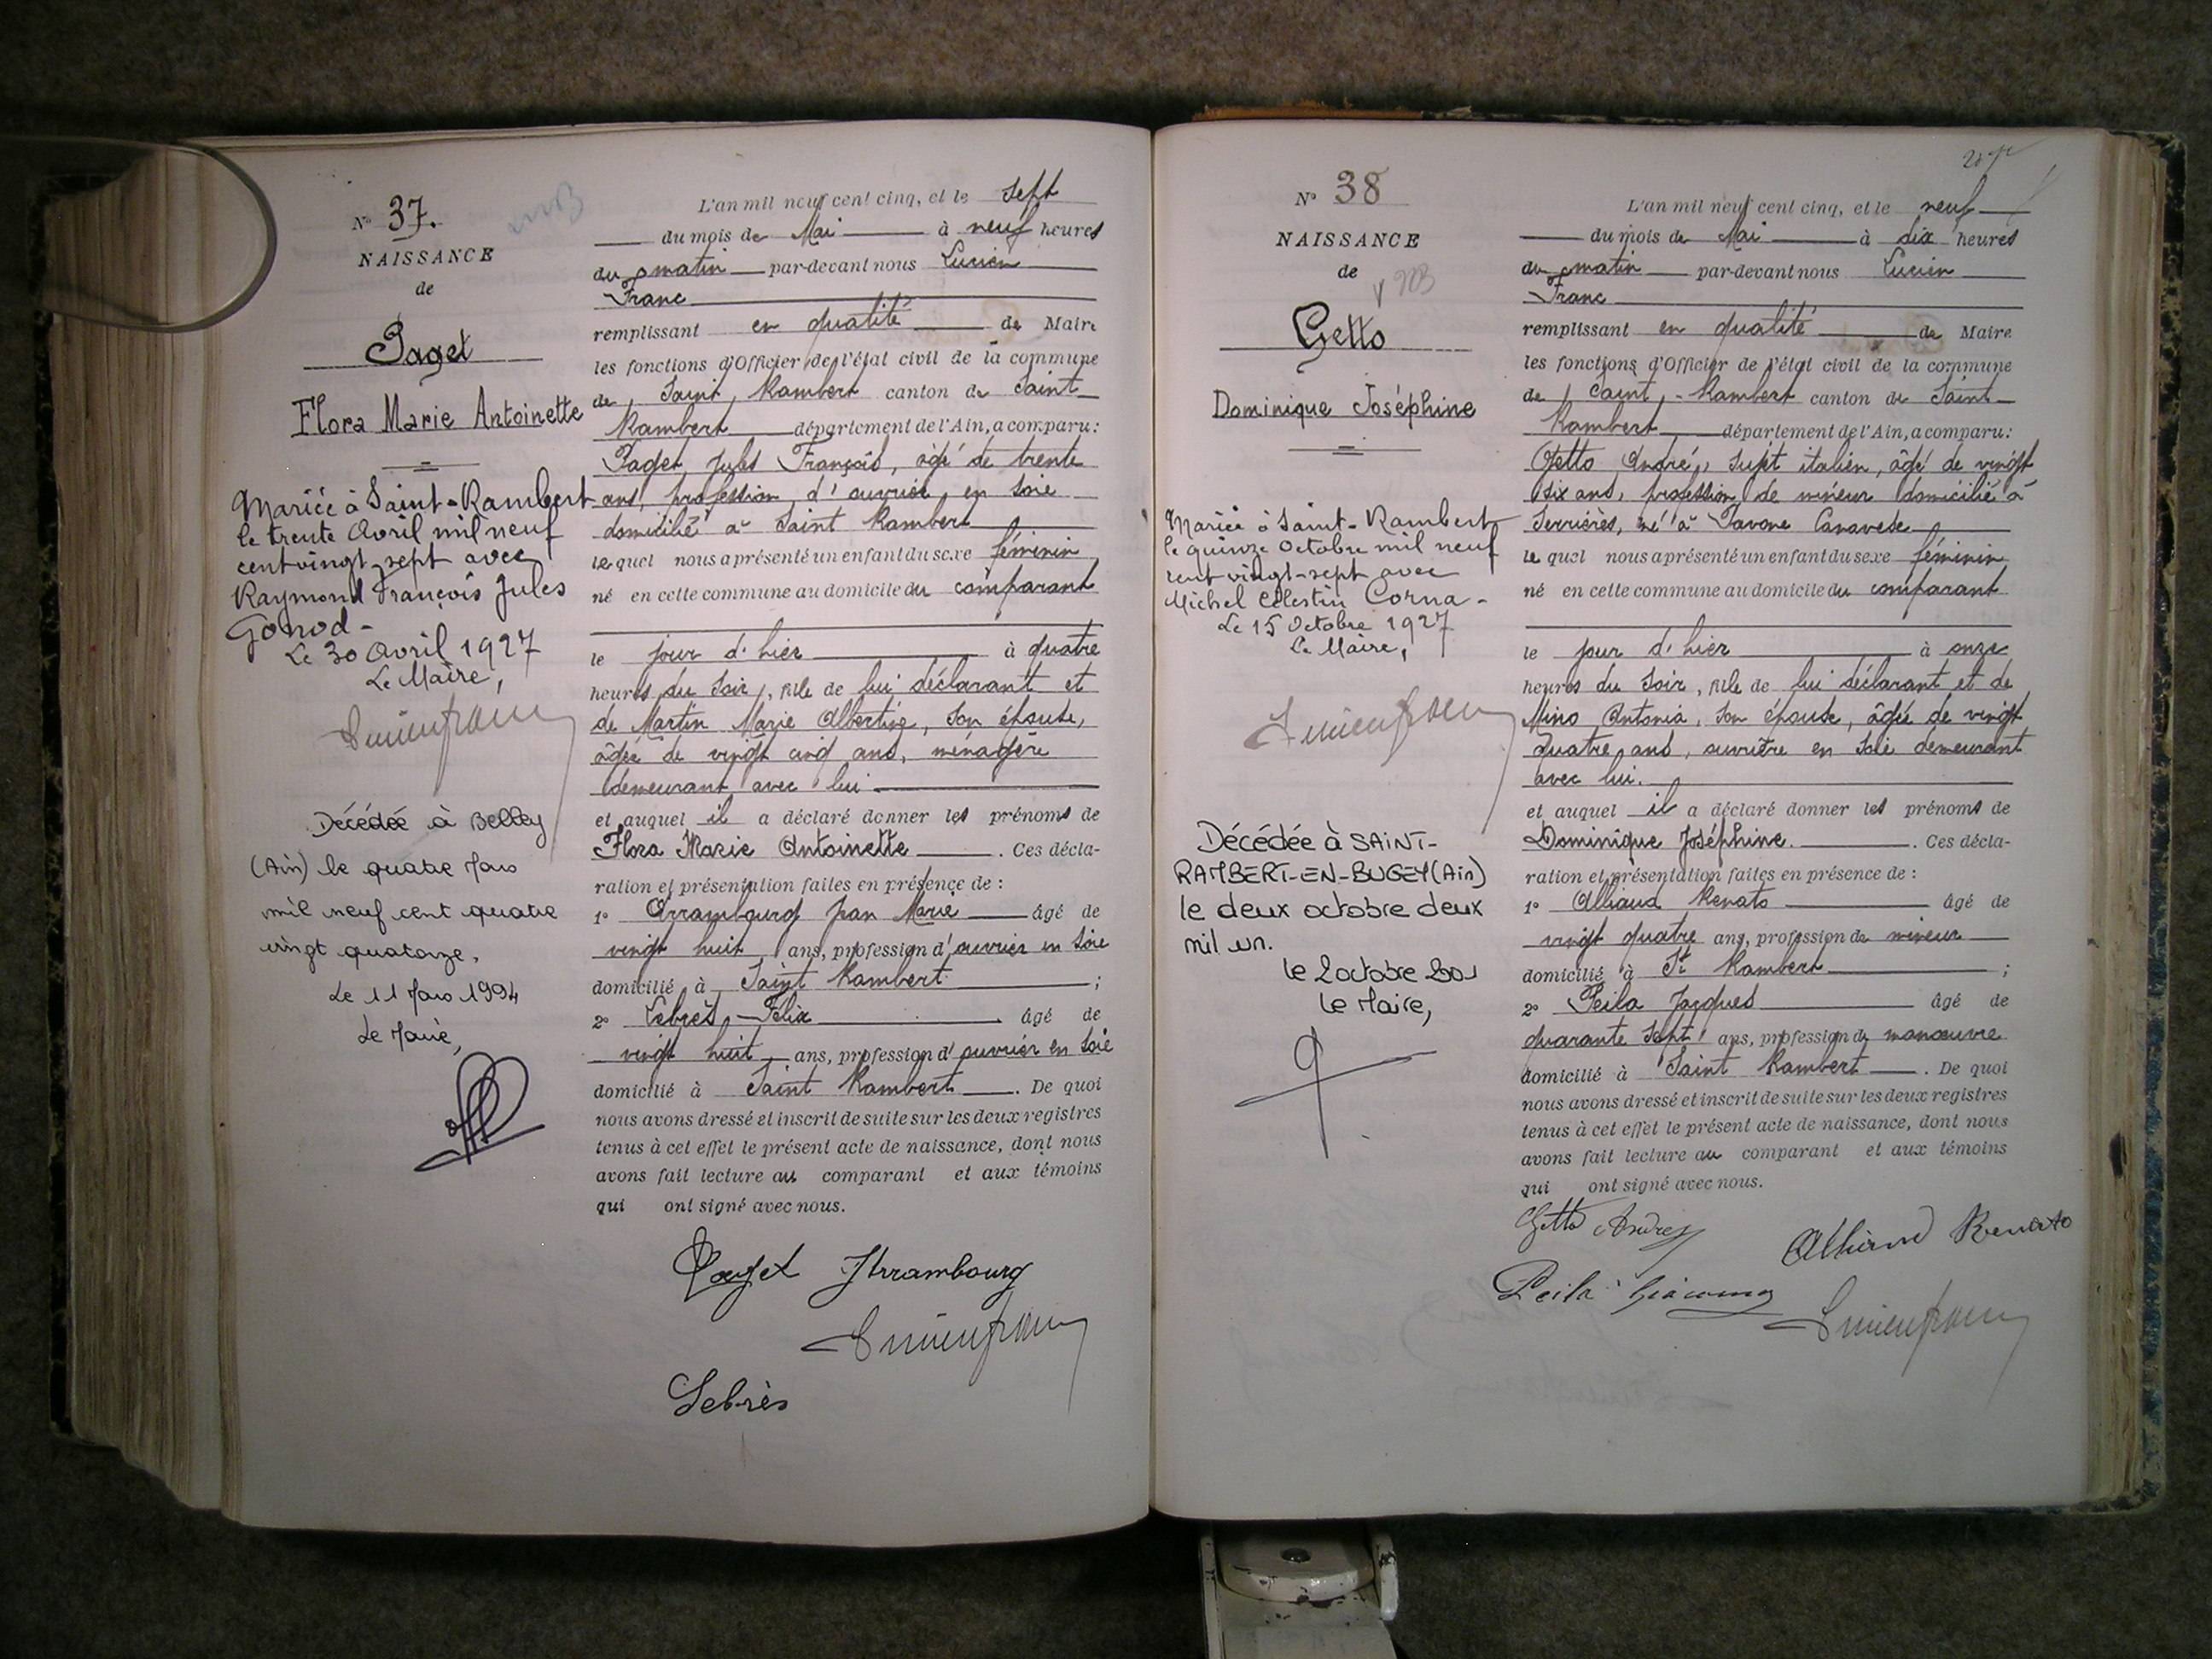 N° 37.
NAISSANCE
de
Paget
Flora Marie Antoinette
Mariée à Saint-Rambert
le trente Avril mil neuf
cent vingt-sept avec
Raymond François Jules
Gonod-
Le 30 Avril 1927
Le Maire,
Décédée à Belley
(Ain) le quatre Mars
mil neuf cent quatre
vingt quatorze.
Le 11 Mars 1994
Le Maire,
L'an mil neuf cent cinq, et le sept
du mois de Mai à neuf heures
du matin par-devant nous Lucien
Franc
remplissant en qualité de Maire
les fonctions d'Officier de l'état civil de la commune
de Saint Rambert canton de Saint
Rambert département de l'Ain, a comparu:
Paget Jules François, âgé de trente
ans, profession d'ouvrier en soie
domicilié à Saint Rambert
lequel nous a présenté un enfant du sexe féminin
né en cette commune au domicile du comparant
le jour d'hier à quatre
heures du soir, fille de lui déclarant et
de Martin Marie Albertine, son épouse,
âgée de vingt cinq ans, ménagère
demeurant avec lui
et auquel il a déclaré donner les prénoms de
Flora Marie Antoinette. Ces décla-
ration et présentation faites en présence de :
1° Arrambourg Jean Marie âgé de
vingt huit ans, profession d'ouvrier en soie
domicilié à Saint Rambert ;
2° Lebrès Félix âgé de
vingt huit ans, profession d'ouvrier en soie
domicilié à Saint Rambert. De quoi
nous avons dressé et inscrit de suite sur les deux registres
tenus à cet effet le présent acte de naissance, dont nous
avons fait lecture au comparant et aux témoins
qui ont signé avec nous.
Paget Arrambourg
Lucien Franc
Lebrès
N° 38
NAISSANCE
de
Getto
Dominique Joséphine
Mariée à Saint-Rambert
le quinze Octobre mil neuf
cent vingt-sept avec
Michel Célestin Corna-
Le 15 Octobre 1927
Le Maire,
Lucien Franc
Décédée à SAINT-
RAMBERT-EN-BUGEY (Ain)
le deux octobre deux
mil un.
le 2 octobre 2001
Le Maire,
L'an mil neuf cent cinq, et le neuf
du mois de Mai à dix heures
du matin par-devant nous Lucien
Franc
remplissant en qualité de Maire
les fonctions d'Officier de l'état civil de la commune
de Saint-Rambert canton de Saint
Rambert département de l'Ain, a comparu:
Getto André, sujet italien, âgé de vingt
six ans, profession de mineur domicilié à
Serrières, né à Pavone Canavese
lequel nous a présenté un enfant du sexe féminin
né en cette commune au domicile du comparant
le jour d'hier à onze
heures du soir, fille de lui déclarant et de
Mino Antonia, son épouse, âgée de vingt
quatre ans, ouvrière en soie demeurant
avec lui.
et auquel il a déclaré donner les prénoms de
Dominique Joséphine. Ces décla-
ration et présentation faites en présence de :
1° Alliaud Renato âgé de
vingt quatre ans, profession de mineur
domicilié à St Rambert ;
2° Peila Jacques âgé de
quarante sept ans, profession de manœuvre
domicilié à Saint Rambert. De quoi
nous avons dressé et inscrit de suite sur les deux registres
tenus à cet effet le présent acte de naissance, dont nous
avons fait lecture au comparant et aux témoins
qui ont signé avec nous.
Getto Andrea Alliaud Renato
Peila Giacomo
Lucien Franc